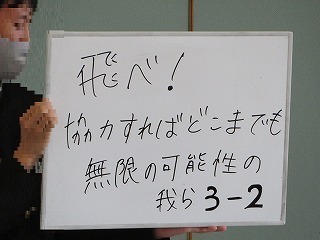 飛べ!
協力すればどこまでも
無限の可能性の
我ら3-2